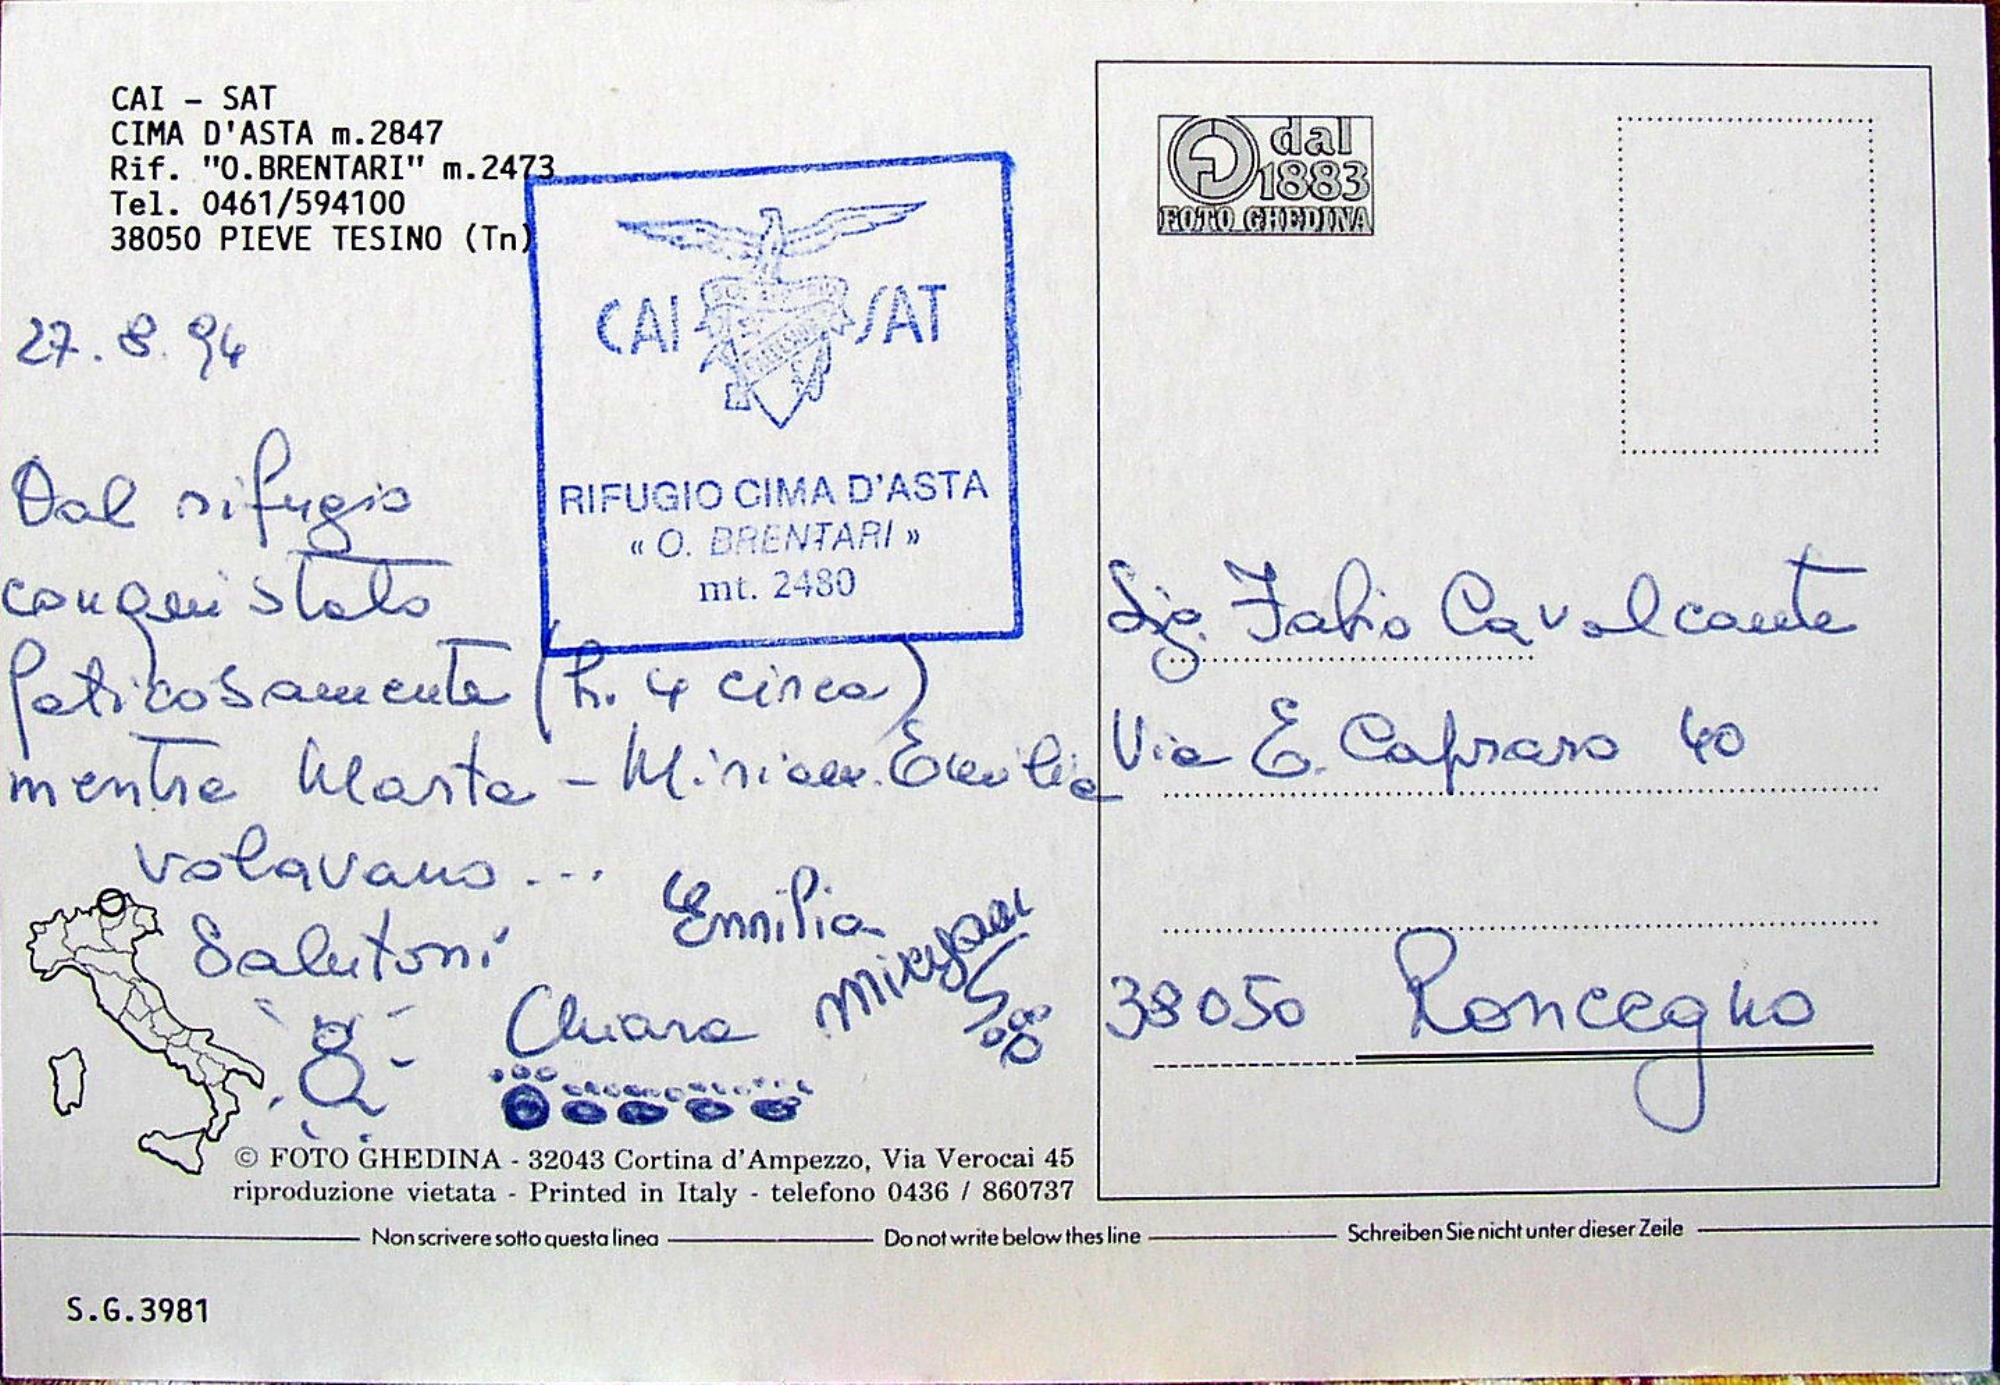 CAI – SAT
CIMA D'ASTA m.2847
Rif. "O.BRENTARI" m.2473
Tel. 0461/594100
38050 PIEVE TESINO (Tn)
CAI SAT
RIFUGIO CIMA D'ASTA
« O. BRENTARI »
mt. 2480
27.8.94
Dal rifugio
conquistato
faticosamente (h. 4 circa)
mentre Marta – Miriam. Emilia
volavano ...
Salutoni
Emilia
Chiara
© FOTO GHEDINA - 32043 Cortina d'Ampezzo, Via Verocai 45
riproduzione vietata - Printed in Italy - telefono 0436 / 860737
dal
1883
FOTO GHEDINA
Sig. Fabio Cavalcante
Via E. Capraro 40
38050 Roncegno
Non scrivere sotto questa linea Do not write below thes line Schreiben Sie nicht unter dieser Zeile
S.G.3981